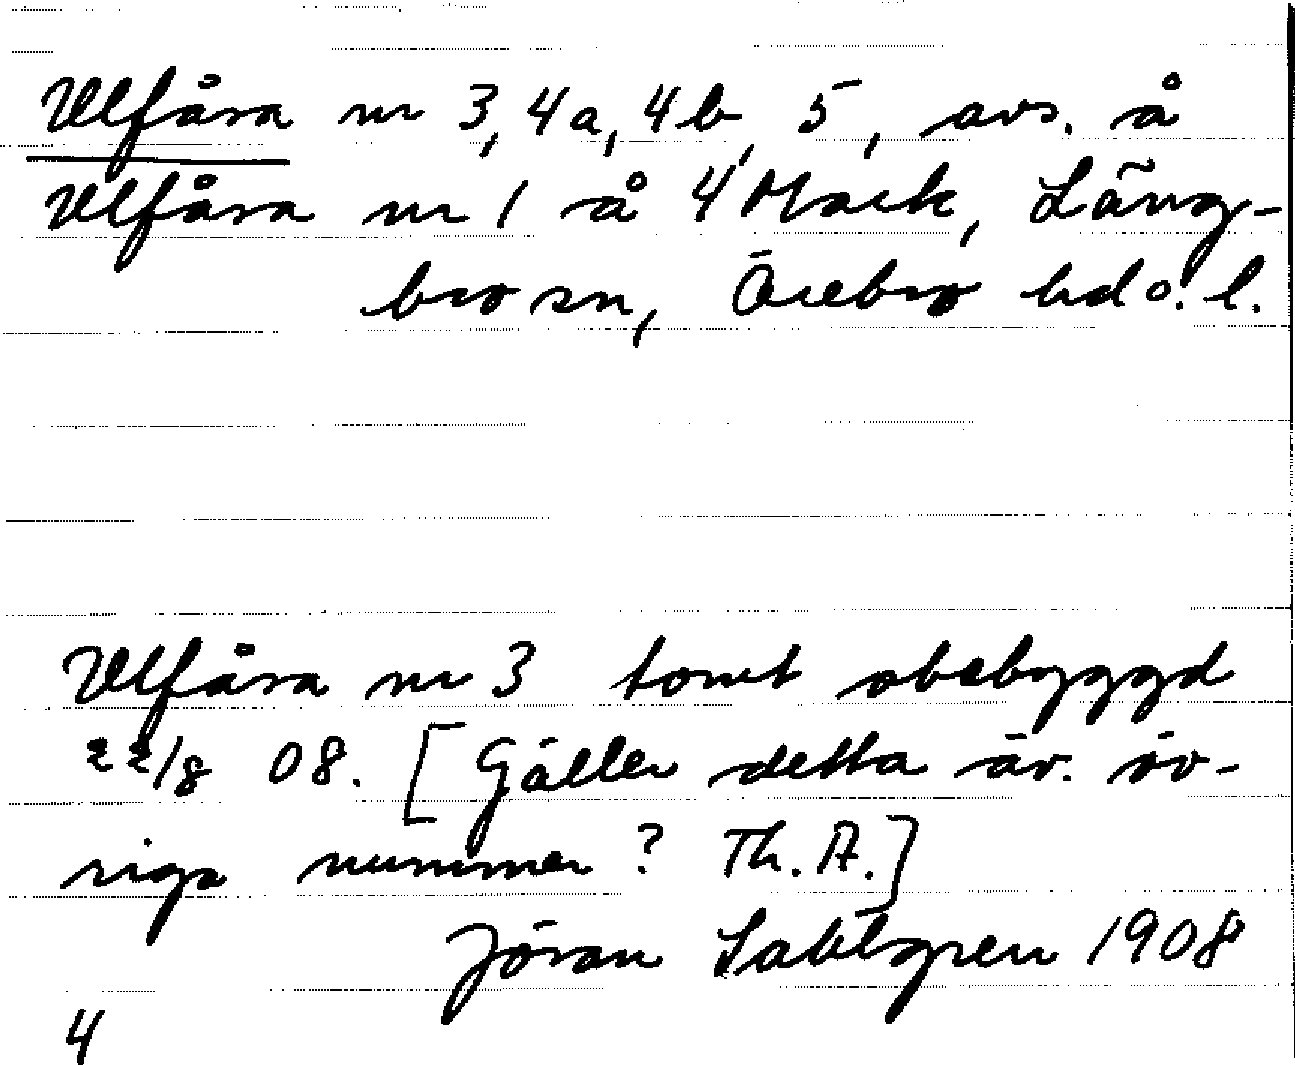 Ulfåsa nr 3, 4a, 4b, 5, avs. å
Ulfåsa nr 1 å 4 Mark, Läng-
bro sn, Örebro hd o. l.
Ulfåsa nr 3 tomt obebyggd
22/8 08. [Gäller detta äv. öv-
riga nummer? Th. A.]
Jöran Sahlgren 1908
4